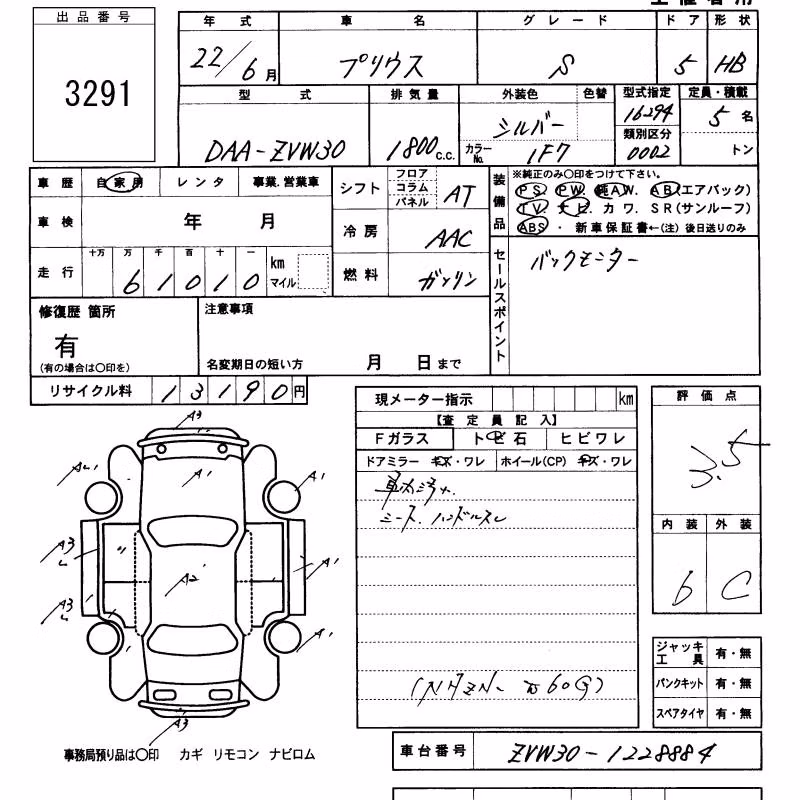 出品番号
3291
年式 車名 グレード ドア 形状
22/6月 プリウス S 5 HB
型式 排気量 外装色 色替 型式指定 定員・積載
DAA-ZVW30 1800c.c. シルバー 16294 5名
カラーNo. 1F7 類別区分 0002 トン
車歴 自家用 レンタ 事業.営業車
シフト フロア コラム パネル AT
装備品 ※純正のみ○印をつけて下さい。
PS. PW. 純AW. AB(エアバック)
TV. ナビ. カワ. SR(サンルーフ)
ABS ・ 新車保証書←(注) 後日送りのみ
車検 年 月
冷房 AAC
走行 十万 万 千 百 十 一 km マイル
61010
燃料 ガソリン
セールスポイント バックモニター
修復歴 箇所 注意事項
有
(有の場合は○印を) 名変期日の短い方 月 日まで
リサイクル料 13190円
現メーター指示 km
【査定員記入】
Fガラス トビ石 ヒビワレ
ドアミラー キズ・ワレ ホイール(CP) キズ・ワレ
シート.ハンドルスレ
評価点
3.5
内装 外装
6 C
A3
A1
A1
A1
A3
A2
A1
A3
A1
A3
ジャッキ工具 有・無
パンクキット 有・無
スペアタイヤ 有・無
事務局預り品は○印 カギ リモコン ナビロム
車台番号 ZVW30-1228884